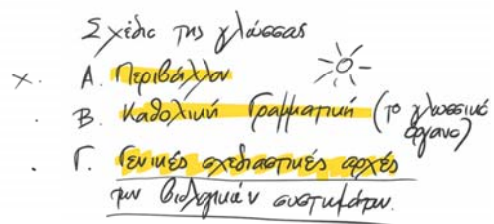 Σχέδιο της γλώσσας
x. Α. Περιβάλλον
. Β. Καθολική Γραμματική (το γλωσσικό όργανο)
. Γ. Γενικές σχεδιαστικές αρχές
των βιολογικών συστημάτων.